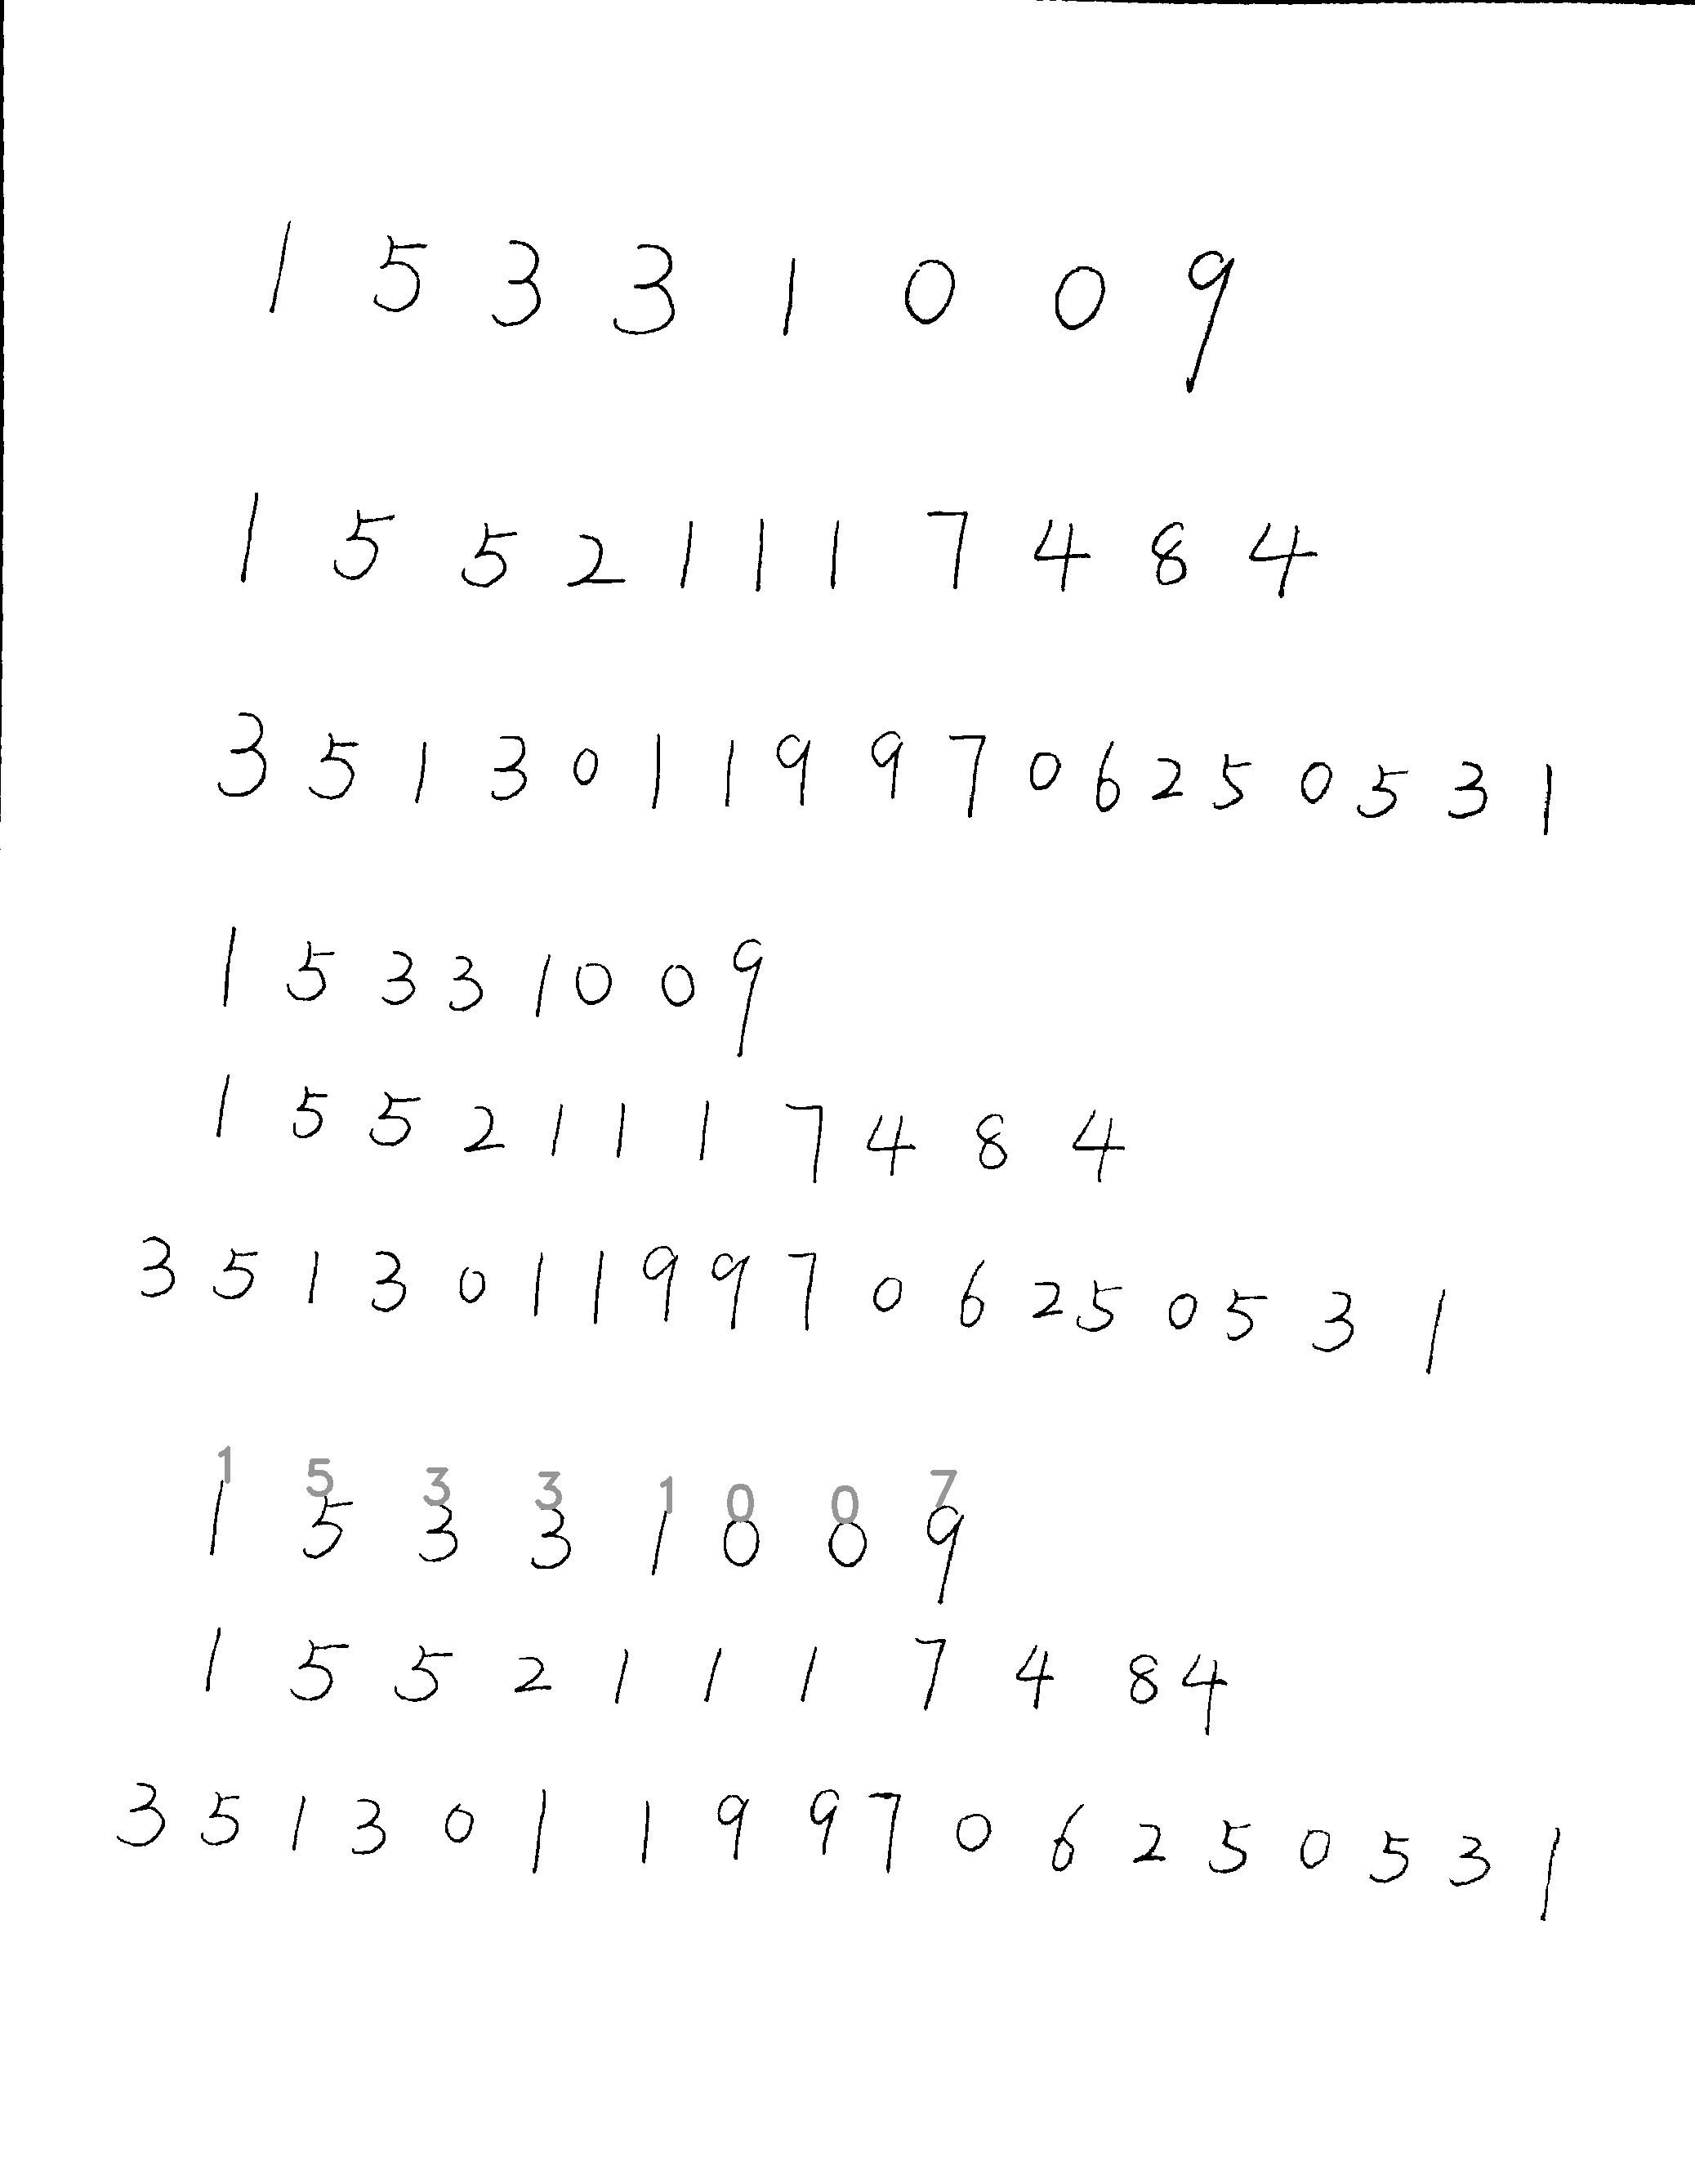 1 5 3 3 1 0 0 9
1 5 5 2 1 1 1 7 4 8 4
3 5 1 3 0 1 1 9 9 7 0 6 2 5 0 5 3 1
1 5 3 3 1 0 0 9
1 5 5 2 1 1 1 7 4 8 4
3 5 1 3 0 1 1 9 9 7 0 6 2 5 0 5 3 1
1 5 3 3 1 0 0 7
1 5 3 3 1 0 0 9
1 5 5 2 1 1 1 7 4 8 4
3 5 1 3 0 1 1 9 9 7 0 6 2 5 0 5 3 1